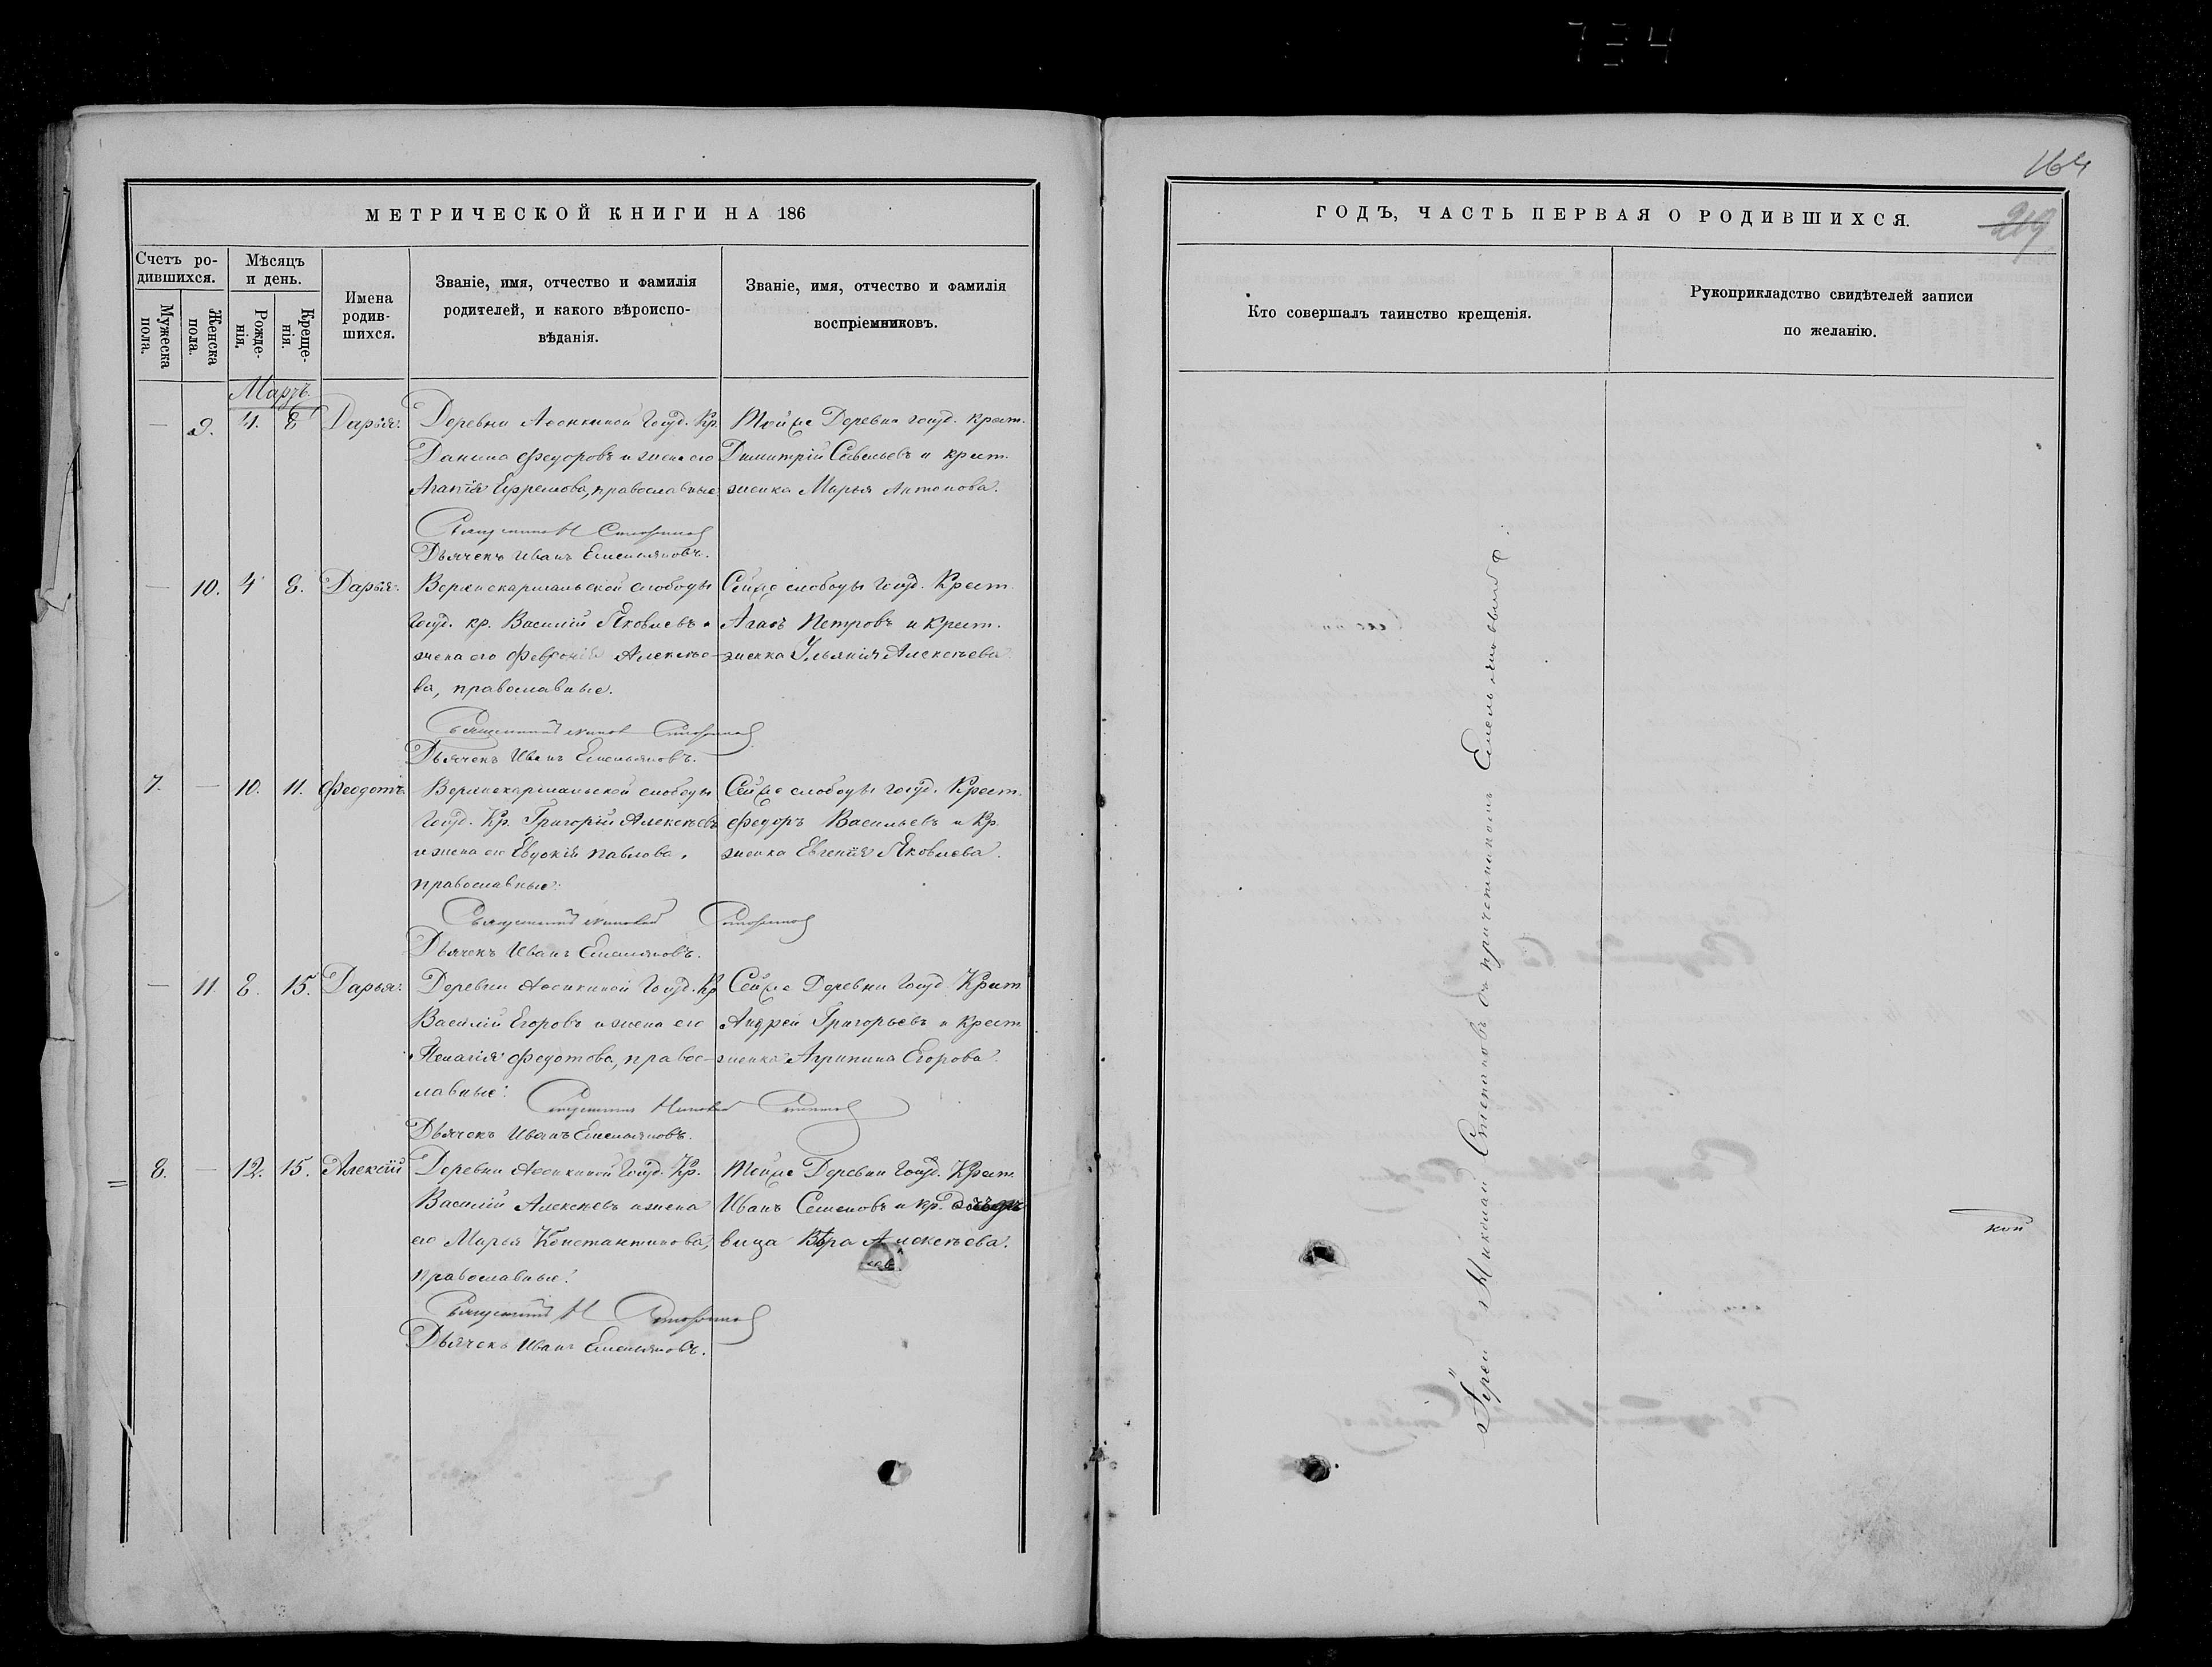 164
МЕТРИЧЕСКОЙ КНИГИ НА 186
ГОДЪ, ЧАСТЬ ПЕРВАЯ О РОДИВШИХСЯ.
219
Счетъ ро-
дившихся.
Мужеска
пола.
Женска
пола.
Мѣсяцъ
и день.
Рожде-
нія.
Креще-
нія.
Имена
родив-
шихся.
Званіе, имя, отчество и фамилія
родителей, и какого вѣроиспо-
вѣданія.
Званіе, имя, отчество и фамилія
воспріемниковъ.
Кто совершалъ таинство крещенія.
Рукоприкладство свидѣтелей записи
по желанію.
Мартъ
— 9. 4. 8 Дарья.
Деревни Госуд. Кр.
Данила Федоровъ и жена его
Агапія Ефремова, православные
Тойже Деревни госуд. крест.
Димитрій Савельевъ и крест.
женка Марья Антонова.
Дьячекъ Иванъ Емельяновъ.
— 10. 4 8. Дарья.
Верхнекармальской слободы
Госуд. кр. Василий Яковлевъ и
жена его Февронія Алексѣе-
ва, православные.
Сейже слободы Госуд. Крест.
Агаѳъ Петровъ и Крест.
женка Ульянія Алексѣева
Дьячекъ Иванъ Емельяновъ.
7. — 10. 11. Феодотъ
Верхнекармальской слободы
Госуд. Кр. Григорій Алексѣевъ
и жена его Евдокія Павлова,
православные.
Сейже слободы госуд. Крест.
Федоръ Васильевъ и Кр.
женка Евгенія Яковлева.
Дьячекъ Иванъ Емельяновъ.
— 11. 8. 15. Дарья.
Деревни Госуд. Кр
Василій Егоровъ и жена его
Пелагія Федотова, правос-
лавные.
Сейже Деревни Госуд Крест
Андрей Григорьевъ и Крест
женка Агрипина Егорова.
Дьячекъ Иванъ Емельяновъ.
8. — 12. 15. Алексій
Деревни Госуд. Кр.
Василій Алексѣевъ и жена
его Марья Константинова,
православные.
Тойже Деревни Госуд. Крест.
Иванъ Семеновъ и кр.
вица Вѣра Алексѣева.
Дьячекъ Иванъ Емельяновъ.
Іерей Николай Степановъ съ причетникомъ Емельяновымъ.
коп